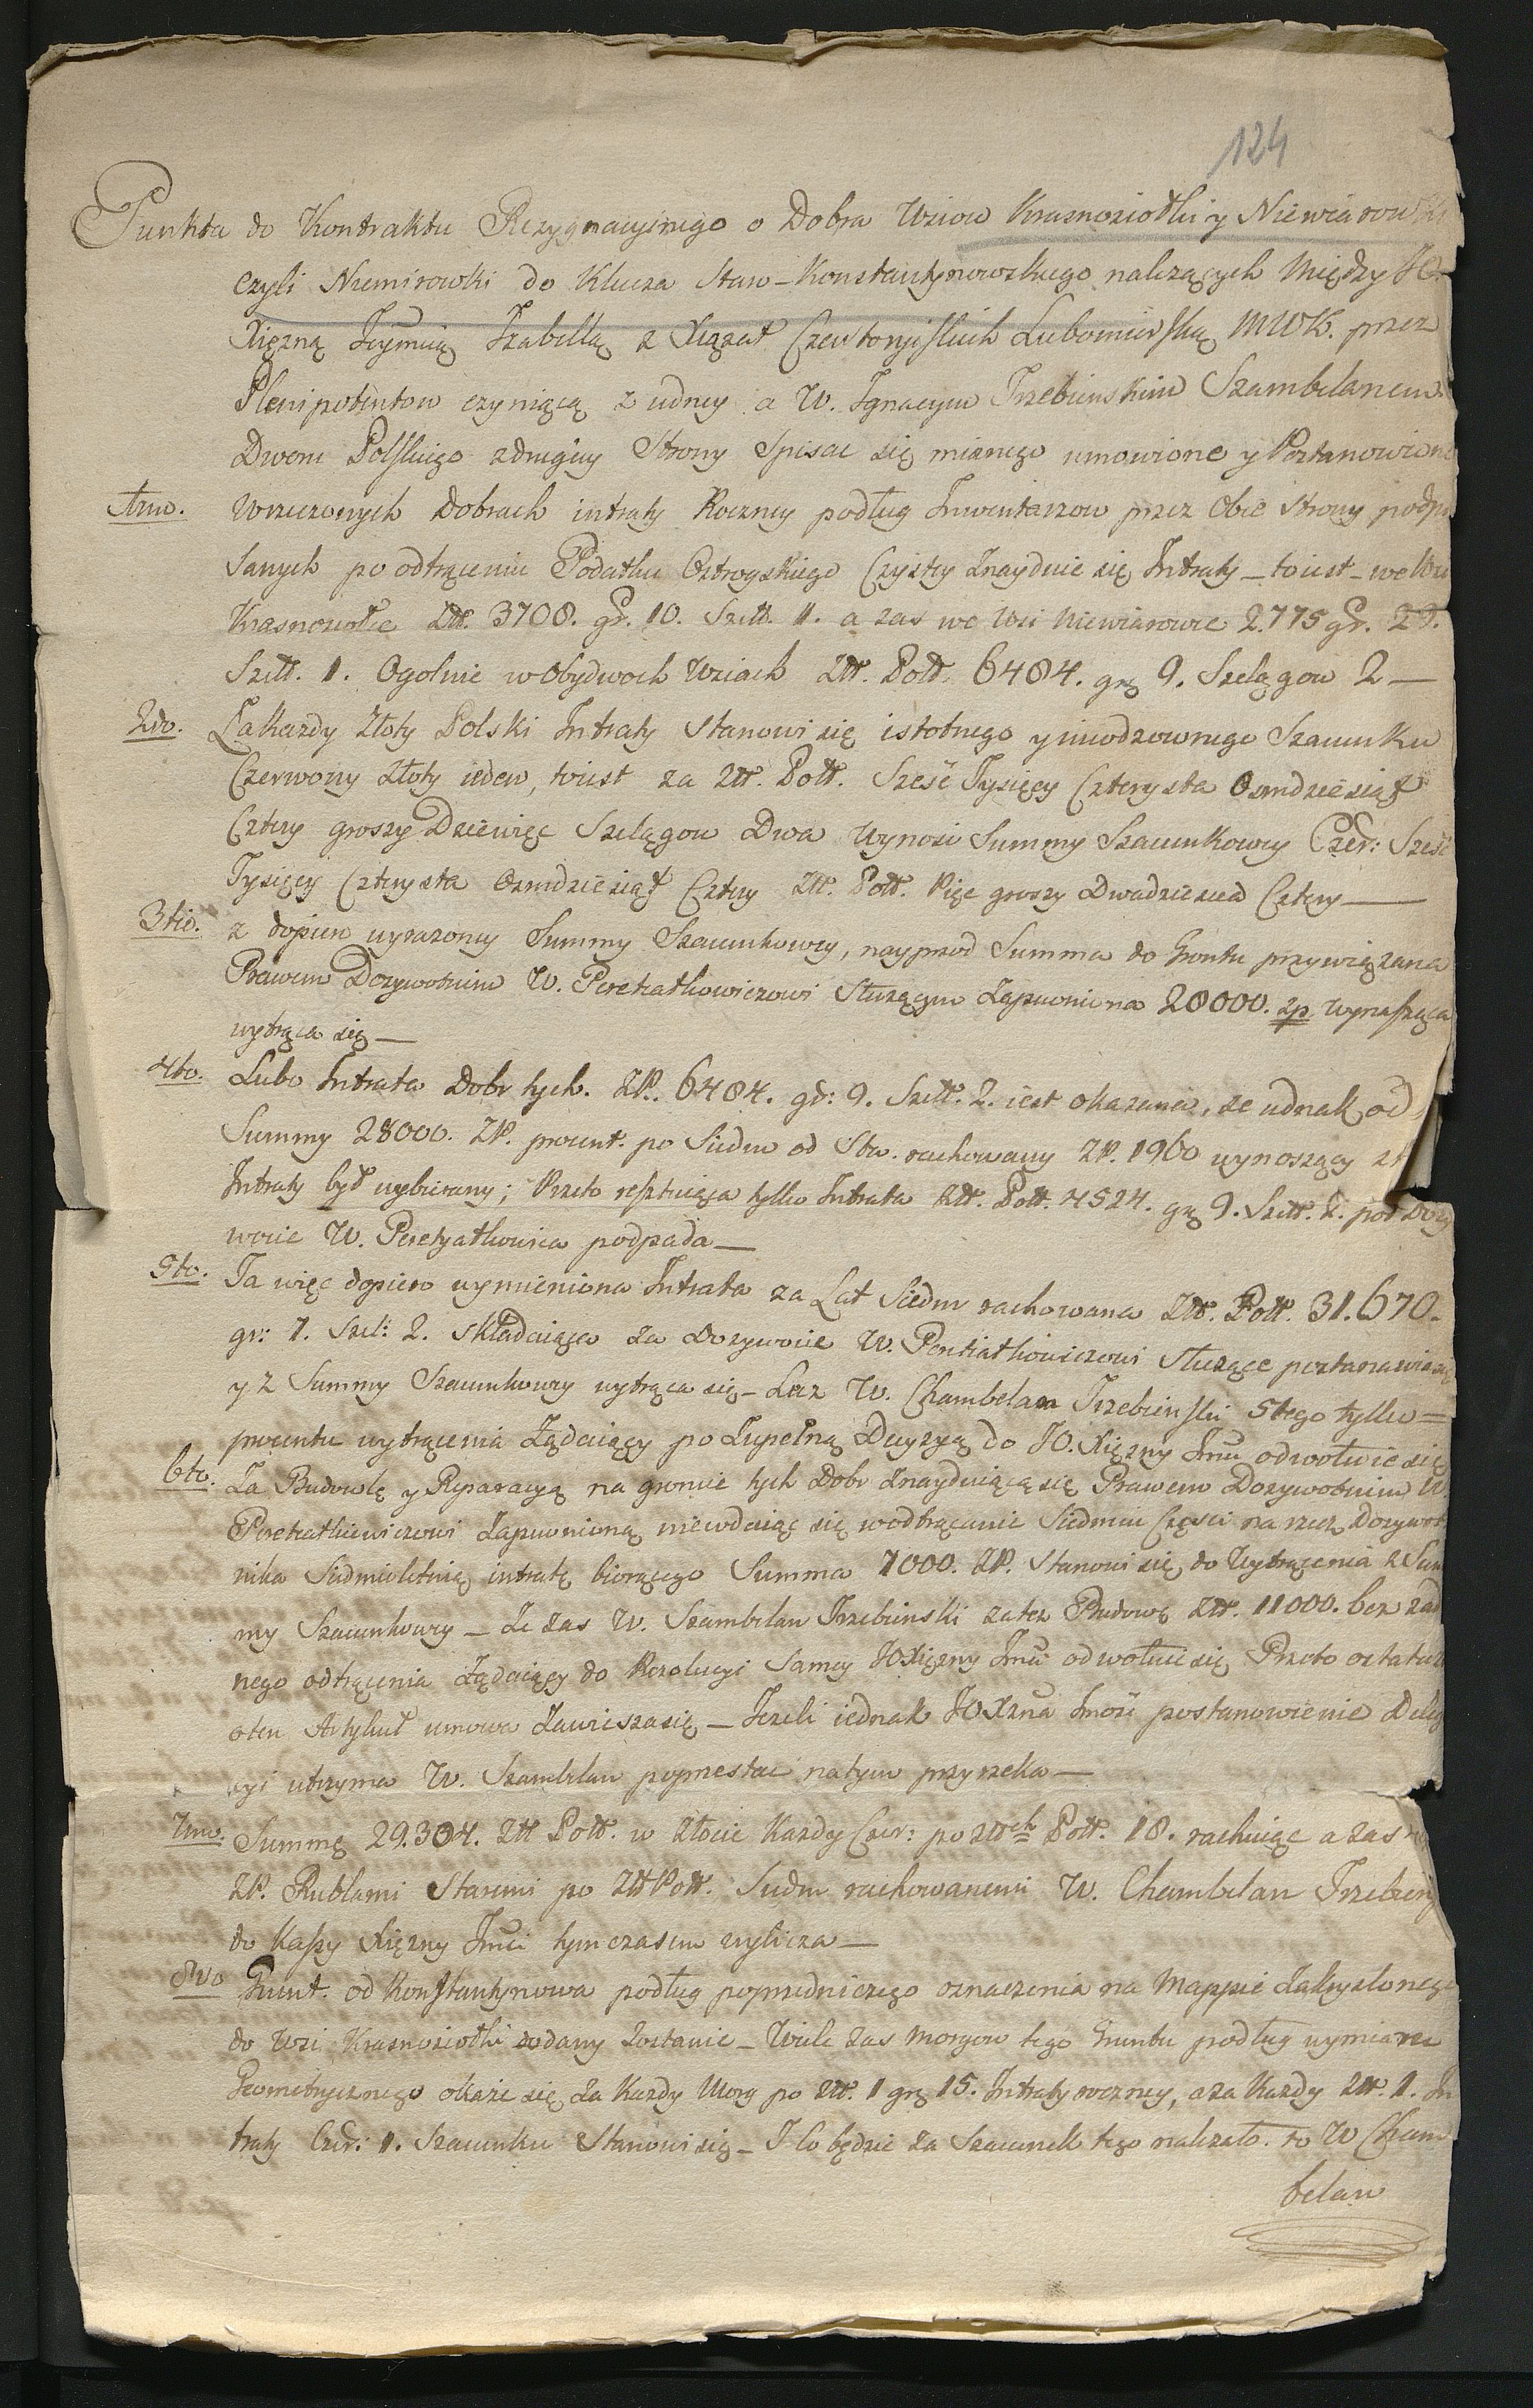 124
Punkta do Kontraktu Rezygnacyinego o Dobra Wsiow Krasnosiołki y Niewiarowki
czyli Niemirowki do Klucza Staro-Konstantynowskiego należących między JO.
Xiężną Jeymcią Izabellą z Xiążąt Czartoryiskich Lubomirską MWK. przez
Plenipotentow czyniącą z iedney a W. Ignacym Trzebinskim Szambelanem
Dworu Polskiego zdrugiey Strony Spisać się mianego umowione y Postanowione
1mo. Wrzeczonych Dobrach intraty Roczney podług Inwentarzow przez Obie Strony podpi
sanych po odtrąceniu Podatku Ostrogskiego Czystey Znayduie się Intraty _ to iest _ we Wsi
Krasnosiołce Złł. 3708. gr. 10. Szell. 1. a zas we Wsi Niewiarowce 2.775 gr. 29.
Szell. 1. Ogolnie w Obydwoch Wsiach Złł. Poll. 6484. gr 9. Szelągow 2 —
2do. Za Każdy Złoty Polski Intraty Stanowi się istotnego y nieodzownego Szacunku
Czerwony Złoty ieden, toiest za Złł. Poll. Sześć Tysięcy Czterysta Osmdziesiąt
Cztery groszy Dziewięc Szelągow Dwa Wynosi Summy Szacunkowey Czer: Sześć
Tysięcy Czterysta Osmdziesiąt Cztery Złł. Poll. Pięc groszy Dwadziescia Cztery —
3tio. z dopiero wyrazoney Summy Szacunkowey, nayprzod Summa do Gruntu przywiązana
Prawem Dozywotnim W. Peretiatkowiczowi Służącym Zapewniona 28000. zp. Wynaszaiąca
wytrąca się —
4to. Lubo Intrata Dobr tych. ZP. 6484. gr: 9. Szell. 2. iest okazana, ze iednak od
Summy 28000. ZP. procent. po Siedm od Sta. rachowany ZP. 1960 wynoszący z
Intraty był wybierany; Przeto resztuiąca tylko Intrata Złł. Poll. 4524. gr 9. Szell. 2. pod Doży
wocie W. Peretyatkowicza podpada —
5to. Ta więc dopiero wymieniona Intrata za Lat Siedm rachowana Złł. Poll. 31.670.
gr: 7. Szel: 2. składaiąca za Dozywocie W. Peretiatkowiczowi Służące postanawia się
y z Summy Szacunkowey wytrąca się — Lecz W. Chambelan Trzebinski 5tego tylko =
procentu wytrącenia Żądaiący po Zupełną Decyzyą do JO. Xiężny Jmci odwołuie się
6to. Za Budowlę y Reparacyą na groncie tych Dobr Znayduiącą się Prawem Dozywotnim W.
Peretiatkiewiczowi Zapewnioną niewdaiąc się wodtrącanie Siedmiu Części na rzecz Dozywot
nika Siedmioletnią intratę biorącego Summa 7000. ZP. Stanowi się do Wytrącenia z Sum
my Szacunkowey — Ze zas W. Szambelan Trzebinski zatez Budowę Złł. 11000. bez zad
nego odtrącenia Żądaiący do Rezolucyi Samey JOXiężny Jmci odwołuie się Przeto ostatecz
oten Artykuł umowa Zawiesza się — Jezeli iednak JOXżna Jmość postanowienie Deleg
cyi utrzyma W. Szambelan poprzestac natym przyrzeka —
7mo. Summę 29.304. Złł Poll. w Złocie Kazdy Czer: po złłch Poll. 18. rachuiąc a zas
ZP. Rublami Staremi po Złł Poll. Siedm rachowanemi W. Chambelan Trzebins
do Kassy Xiężny Jmci tymczasem wylicza —
8vo Grunt. od Konstantynowa podług poprzedniczego oznaczenia na Mappie Zakryslonego
do Wsi Krasnosiołki dodany Zostanie — Wiele zas morgow tego Gruntu podług wymiaru
Geometrycznego okaże się za Kazdy Morg po Złł. 1 gr 15. Intraty roczney, a za Kazdy Złł. 1. In
traty Czer: 1. Szacunku Stanowi się — I Co będzie za Szacunek tego nalezało. to W Cham
belan